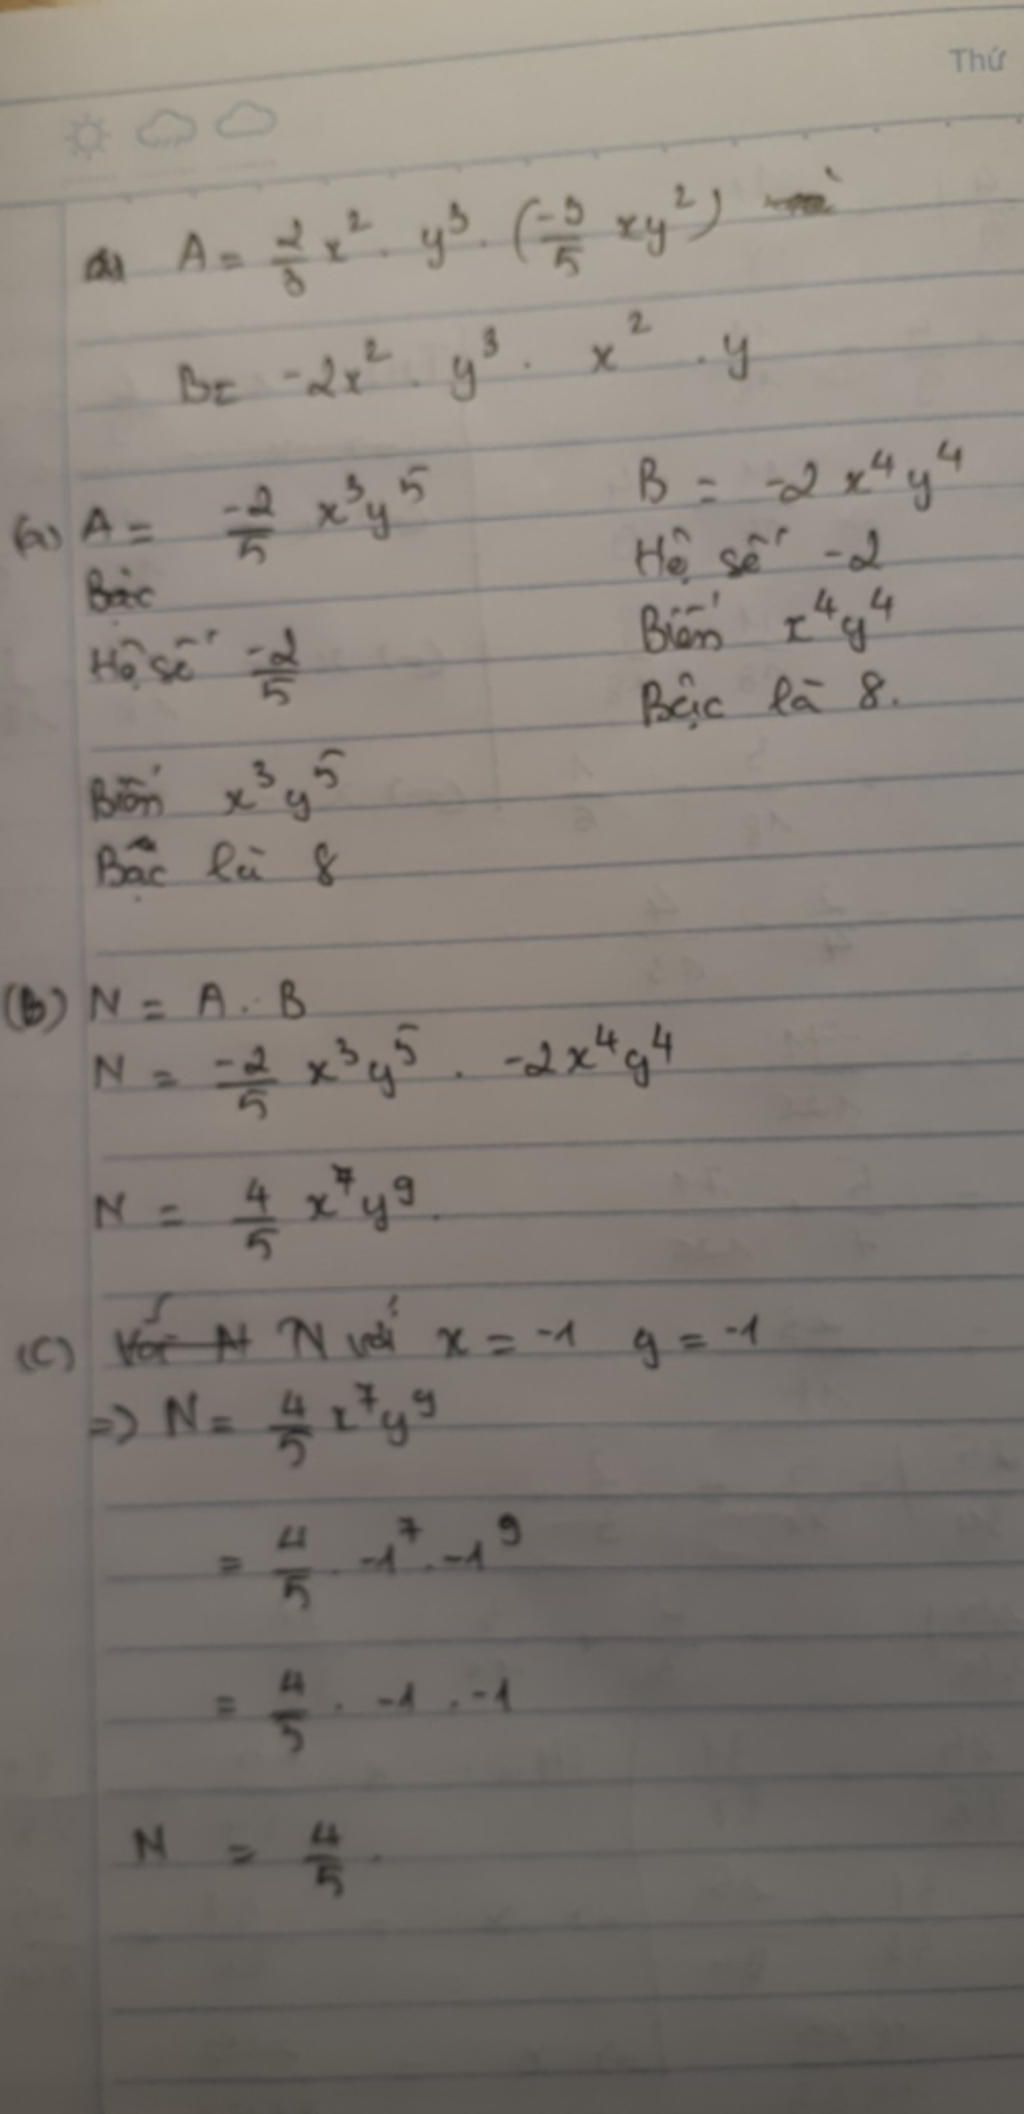 Thứ
A = 2/3 x² . y³ . (-3/5 xy²)
B = -2x² . y³ . x² . y
(a) A = -2/5 x³y⁵
Bậc
Hệ số -2/5
Biến x³y⁵
Bậc là 8
B = -2 x⁴y⁴
Hệ số -2
Biến x⁴y⁴
Bậc là 8.
(b) N = A . B
N = -2/5 x³y⁵ . -2x⁴y⁴
N = 4/5 x⁷y⁹.
(C) Với N N với x = -1 y = -1
=> N = 4/5 x⁷y⁹
= 4/5 . -1⁷ . -1⁹
= 4/5 . -1 . -1
N = 4/5 .